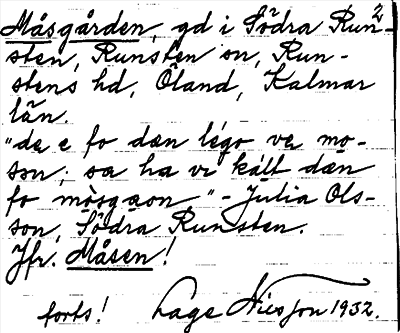 Måsgården, gd i Södra Run- 2
sten, Runsten sn, Run-
stens hd, Öland, Kalmar
län.
"de e fo dæn légo ve mo-
son; sa ha vi kált dæn
fo mòsgæon." - Julia Ols-
son, Södra Runsten.
Jfr. Måsen!
forts! Lage Nilsson 1932.